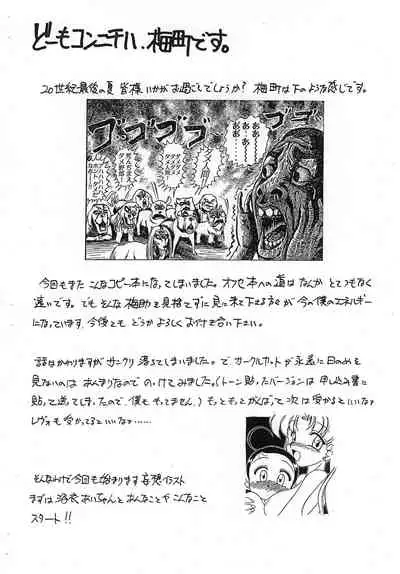 どーもコンニチハ、梅町です。
20世紀最後の夏 皆様いかがお過ごしでしょうか？ 梅町は下のような感じです。
ゴゴゴゴゴ
ゴゴゴ
今回もまた こんなコピー本になってしまいました。オフセ本への道はなんか とてつもなく
遠いです。でも そんな梅町を見捨てずに見に来て下さる方々が 今の僕のエネルギー
になっています 今後とも どうか よろしくお付き合い下さい。
話はかわりますが サンクリ 落ちてしまいました。で サークルカットが永遠に日のめを
見ないのは あんまりなので のっけてみました。(トーン貼ったバージョンは 申し込み書に
貼って送ってしまったので 僕も もってません。) もっともっとがんばって 次は受かるといいなァ
レヴォも受かってるといいなァ……
そんなわけで今回も始まります 妄想イラスト
まずは あいちゃんと あんなことや こんなこと
スタート!!